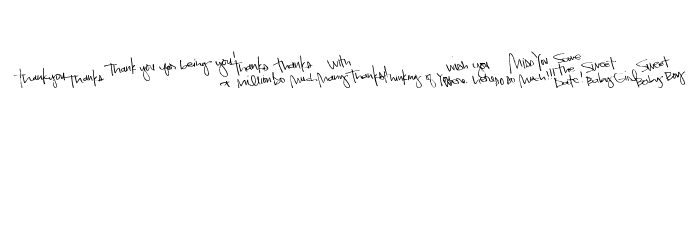 thank you
thanks
Thank you for being you!
thanks
a million
thanks
so much
with
many thanks
thinking of you
wish you
were here
Miss You
so so much!!!
Save
the
date!
Sweet
Baby Girl
Sweet
Baby Boy